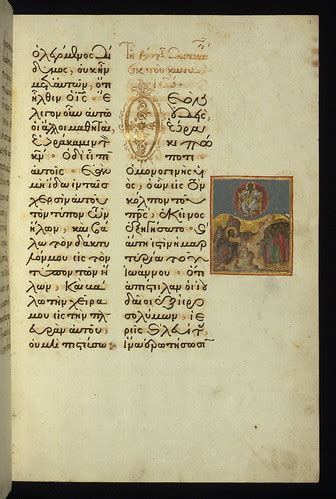 ὁ λεγόμενος Δί
δυμος, οὐκ ἦν
μετ' αὐτῶν, ὅτε
ἦλθεν ὁ Ις. Ἔ
λεγον οὖν αὐτῶ
οἱ ἄλλοι μαθηταὶ,
Ἑωράκαμεν τὸν
κν. Ὁ δὲ εἶπεν
αὐτοῖς. Ἐὰν
μὴ ἴδω ἐν ταῖς
χερσὶν αὐτοῦ
τὸν τύπον τῶν
ἥλων, καὶ βά
λω τὸν δάκτυ
λόν μου εἰς τὸν
τύπον τῶν ἥ
λων, Καὶ βά
λω τὴν χεῖρα
μου εἰς τὴν πλε
υρὰν αὐτοῦ,
οὐ μὴ πιστεύσω
Θεὸν οὐ
δεὶς
ἑώρακε πώ
ποτε
Ὁ μονογενὴς
υς, ὁ ὢν εἰς τὸν
κόλπον τοῦ
πρς, ἐκεῖνος
ἐξηγήσατο. Καὶ
αὕτη ἐστὶν ἡ μαρ
τυρία τοῦ
Ἰωάννου. ὅτε
ἀπέστειλαν οἱ Ἰου
δαῖοι ἐξ Ἱερο
σολύμων, ἱε
ρεῖς καὶ Λευΐτας
ἵνα ἐρωτήσωσιν